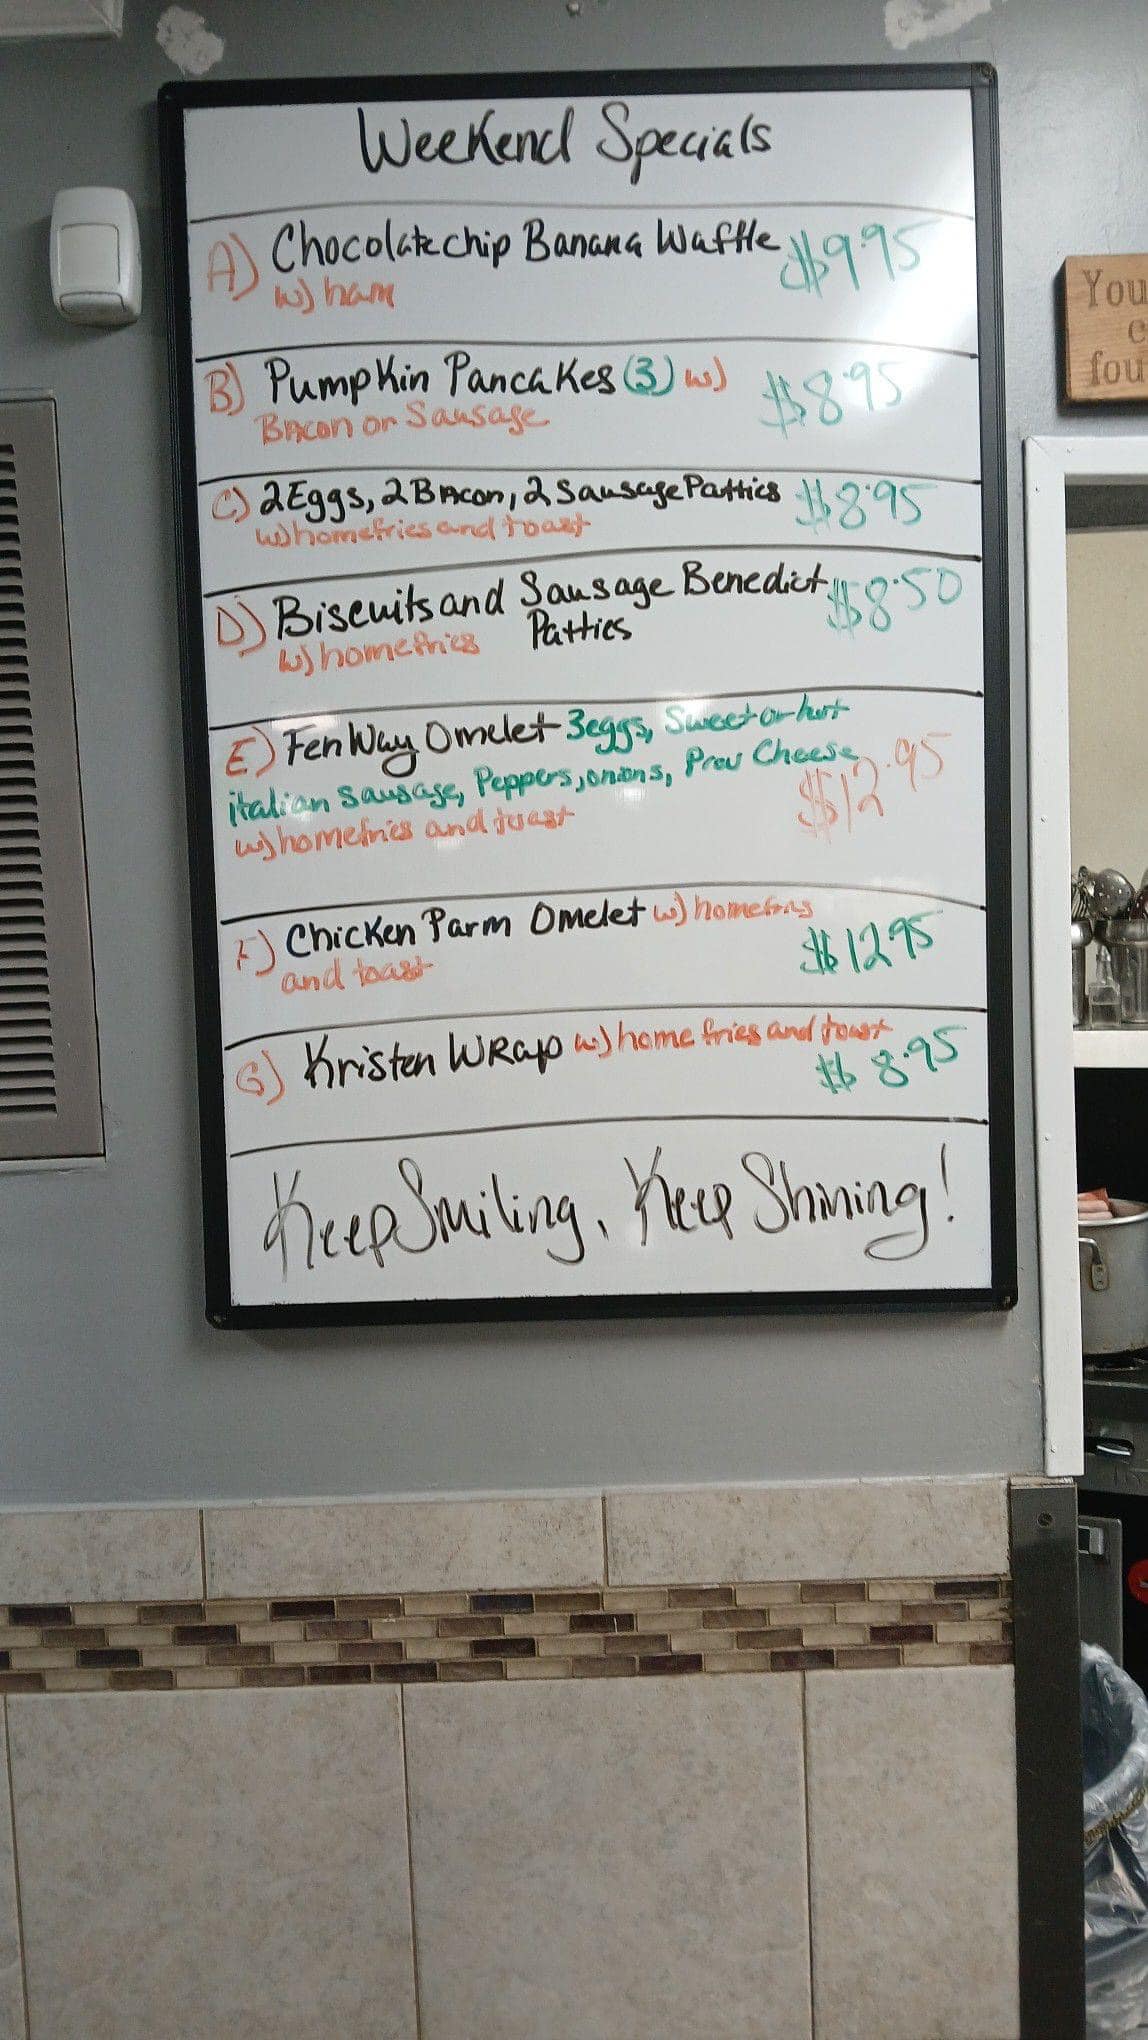 Weekend Specials
A) Chocolate chip Banana Waffle $9.95
w) ham
B) Pumpkin Pancakes (3) w) $8.95
Bacon or Sausage
C) 2 Eggs, 2 Bacon, 2 Sausage Patties $8.95
w) homefries and toast
D) Biscuits and Sausage Benedict $8.50
w) homefries Patties
E) FenWay Omelet 3eggs, Sweet or hot
italian Sausage, Peppers, onions, Prov Cheese
w) homefries and toast $12.95
F) Chicken Parm Omelet w) homefries
and toast $12.95
G) Kristen Wrap w) home fries and toast
$8.95
Keep Smiling, Keep Shining!
You
c
fou